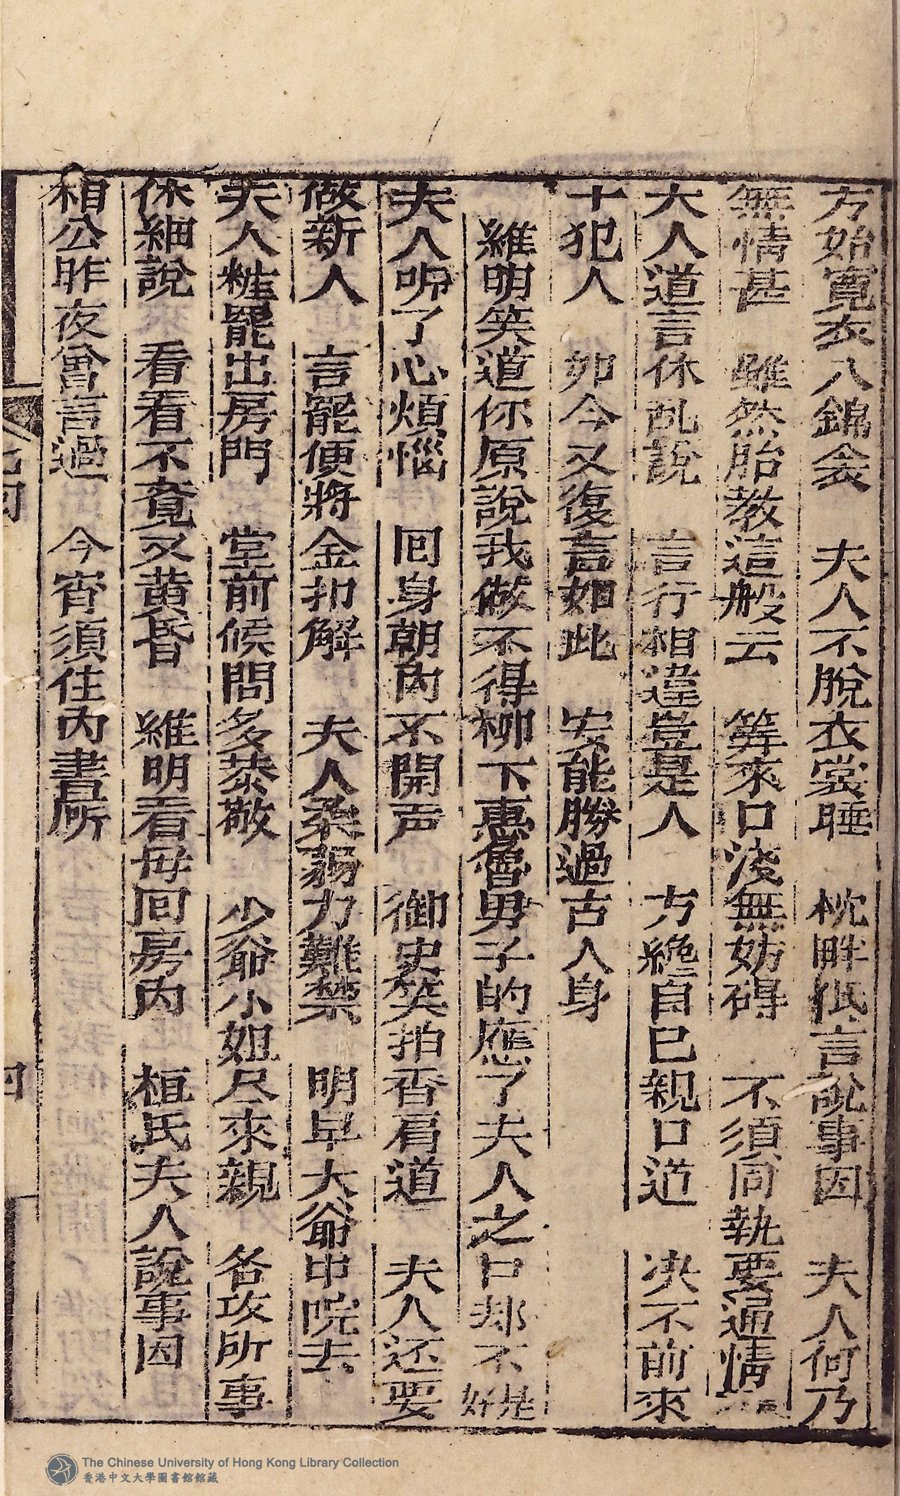 方始寬衣入錦衾　夫人不脫衣裳睡　枕畔低言說事因　夫人何乃
無情甚　雖然胎教這般云　筭來口淺無妨碍　不須同執要通情
大人道言休乱說　言行相違豈是人　方纔自已親口道　决不前來
十犯人　如今又復言如此　安能勝過古人身
維明笑道你原說我做不得柳下惠魯男子的應了夫人之口却不是好
夫人听了心煩惱　回身朝內不開声　御史笑拍香肩道　夫人还要
做新人　言罷便將金扣解　夫人柔弱力難禁　明早大爺申院去
夫人粧罷出房門　堂前候問多恭敬　少爺小姐尽來親　各攻所事
休細說　看看不竟又黄昏　維明看母回房內　桓氏夫人說事因
相公昨夜會言過　今宵須住內書所
四
The Chinese University of Hong Kong Library Collection
香港中文大學圖書館館藏